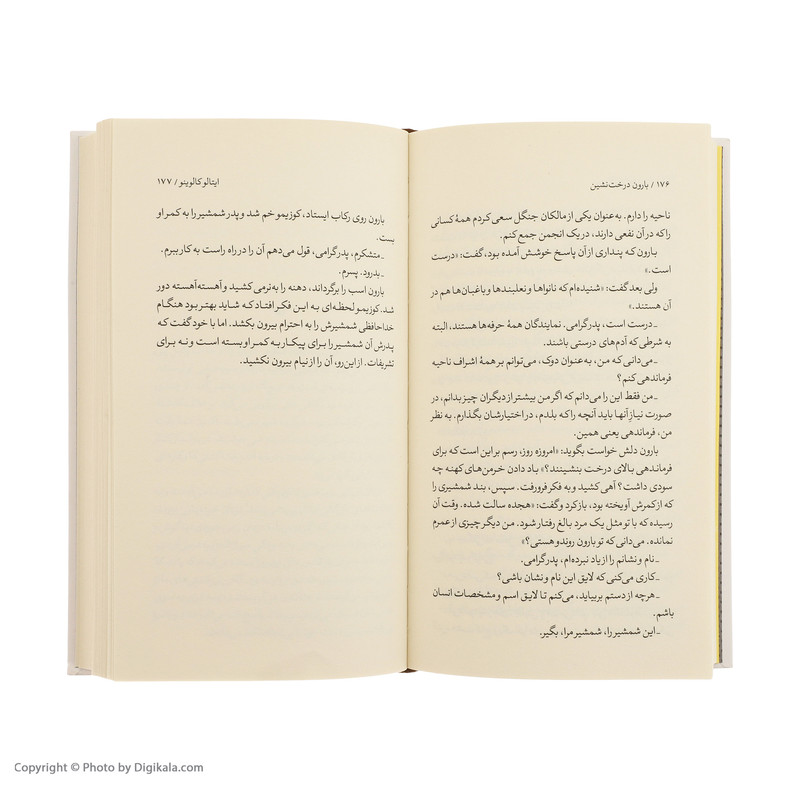 ۱۷۶ / بارون درخت‌نشین
ناحیه را دارم. به‌عنوان یکی از مالکان جنگل سعی کردم همهٔ کسانی
را که در آن نفعی دارند، در یک انجمن جمع کنم.
بارون که پنداری از آن پاسخ خوشش آمده بود، گفت: «درست
است.»
ولی بعد گفت: «شنیده‌ام که نانواها و نعلبندها و باغبان‌ها هم در
آن هستند.»
ـ درست است، پدر گرامی. نمایندگان همهٔ حرفه‌ها هستند، البته
به شرطی که آدم‌های درستی باشند.
ـ می‌دانی که من، به‌عنوان دوک، می‌توانم بر همهٔ اشراف ناحیه
فرماندهی کنم؟
ـ من فقط این را می‌دانم که اگر من بیشتر از دیگران چیز بدانم، در
صورت نیاز آنها باید آنچه را که بلدم، در اختیارشان بگذارم. به نظر
من، فرماندهی یعنی همین.
بارون دلش خواست بگوید: «امروزه روز، رسم بر این است که برای
فرماندهی بالای درخت بنشینند؟» باد دادن خرمن‌های کهنه چه
سودی داشت؟ آهی کشید و به فکر فرو رفت. سپس، بند شمشیری را
که از کمرش آویخته بود، باز کرد و گفت: «هجده سالت شده. وقت آن
رسیده که با تو مثل یک مرد بالغ رفتار شود. من دیگر چیزی از عمرم
نمانده. می‌دانی که تو بارون روندو هستی؟»
ـ نام و نشانم را از یاد نبرده‌ام، پدر گرامی.
ـ کاری می‌کنی که لایق این نام و نشان باشی؟
ـ هرچه از دستم بربیاید، می‌کنم تا لایق اسم و مشخصات انسان
باشم.
ـ این شمشیر را، شمشیر مرا، بگیر.
ایتالو کالوینو / ۱۷۷
بارون روی رکاب ایستاد، کوزیمو خم شد و پدر شمشیر را به کمر او
بست.
ـ متشکرم، پدر گرامی، قول می‌دهم آن را در راه راست به کار ببرم.
ـ بدرود. پسرم.
بارون اسب را برگرداند، دهنه را به‌نرمی کشید و آهسته‌آهسته دور
شد. کوزیمو لحظه‌ای به این فکر افتاد که شاید بهتر بود هنگام
خداحافظی شمشیرش را به احترام بیرون بکشد. اما با خود گفت که
پدرش آن شمشیر را برای پیکار به کمر او بسته است و نه برای
تشریفات. از این‌رو، آن را از نیام بیرون نکشید.
Copyright © Photo by Digikala.com